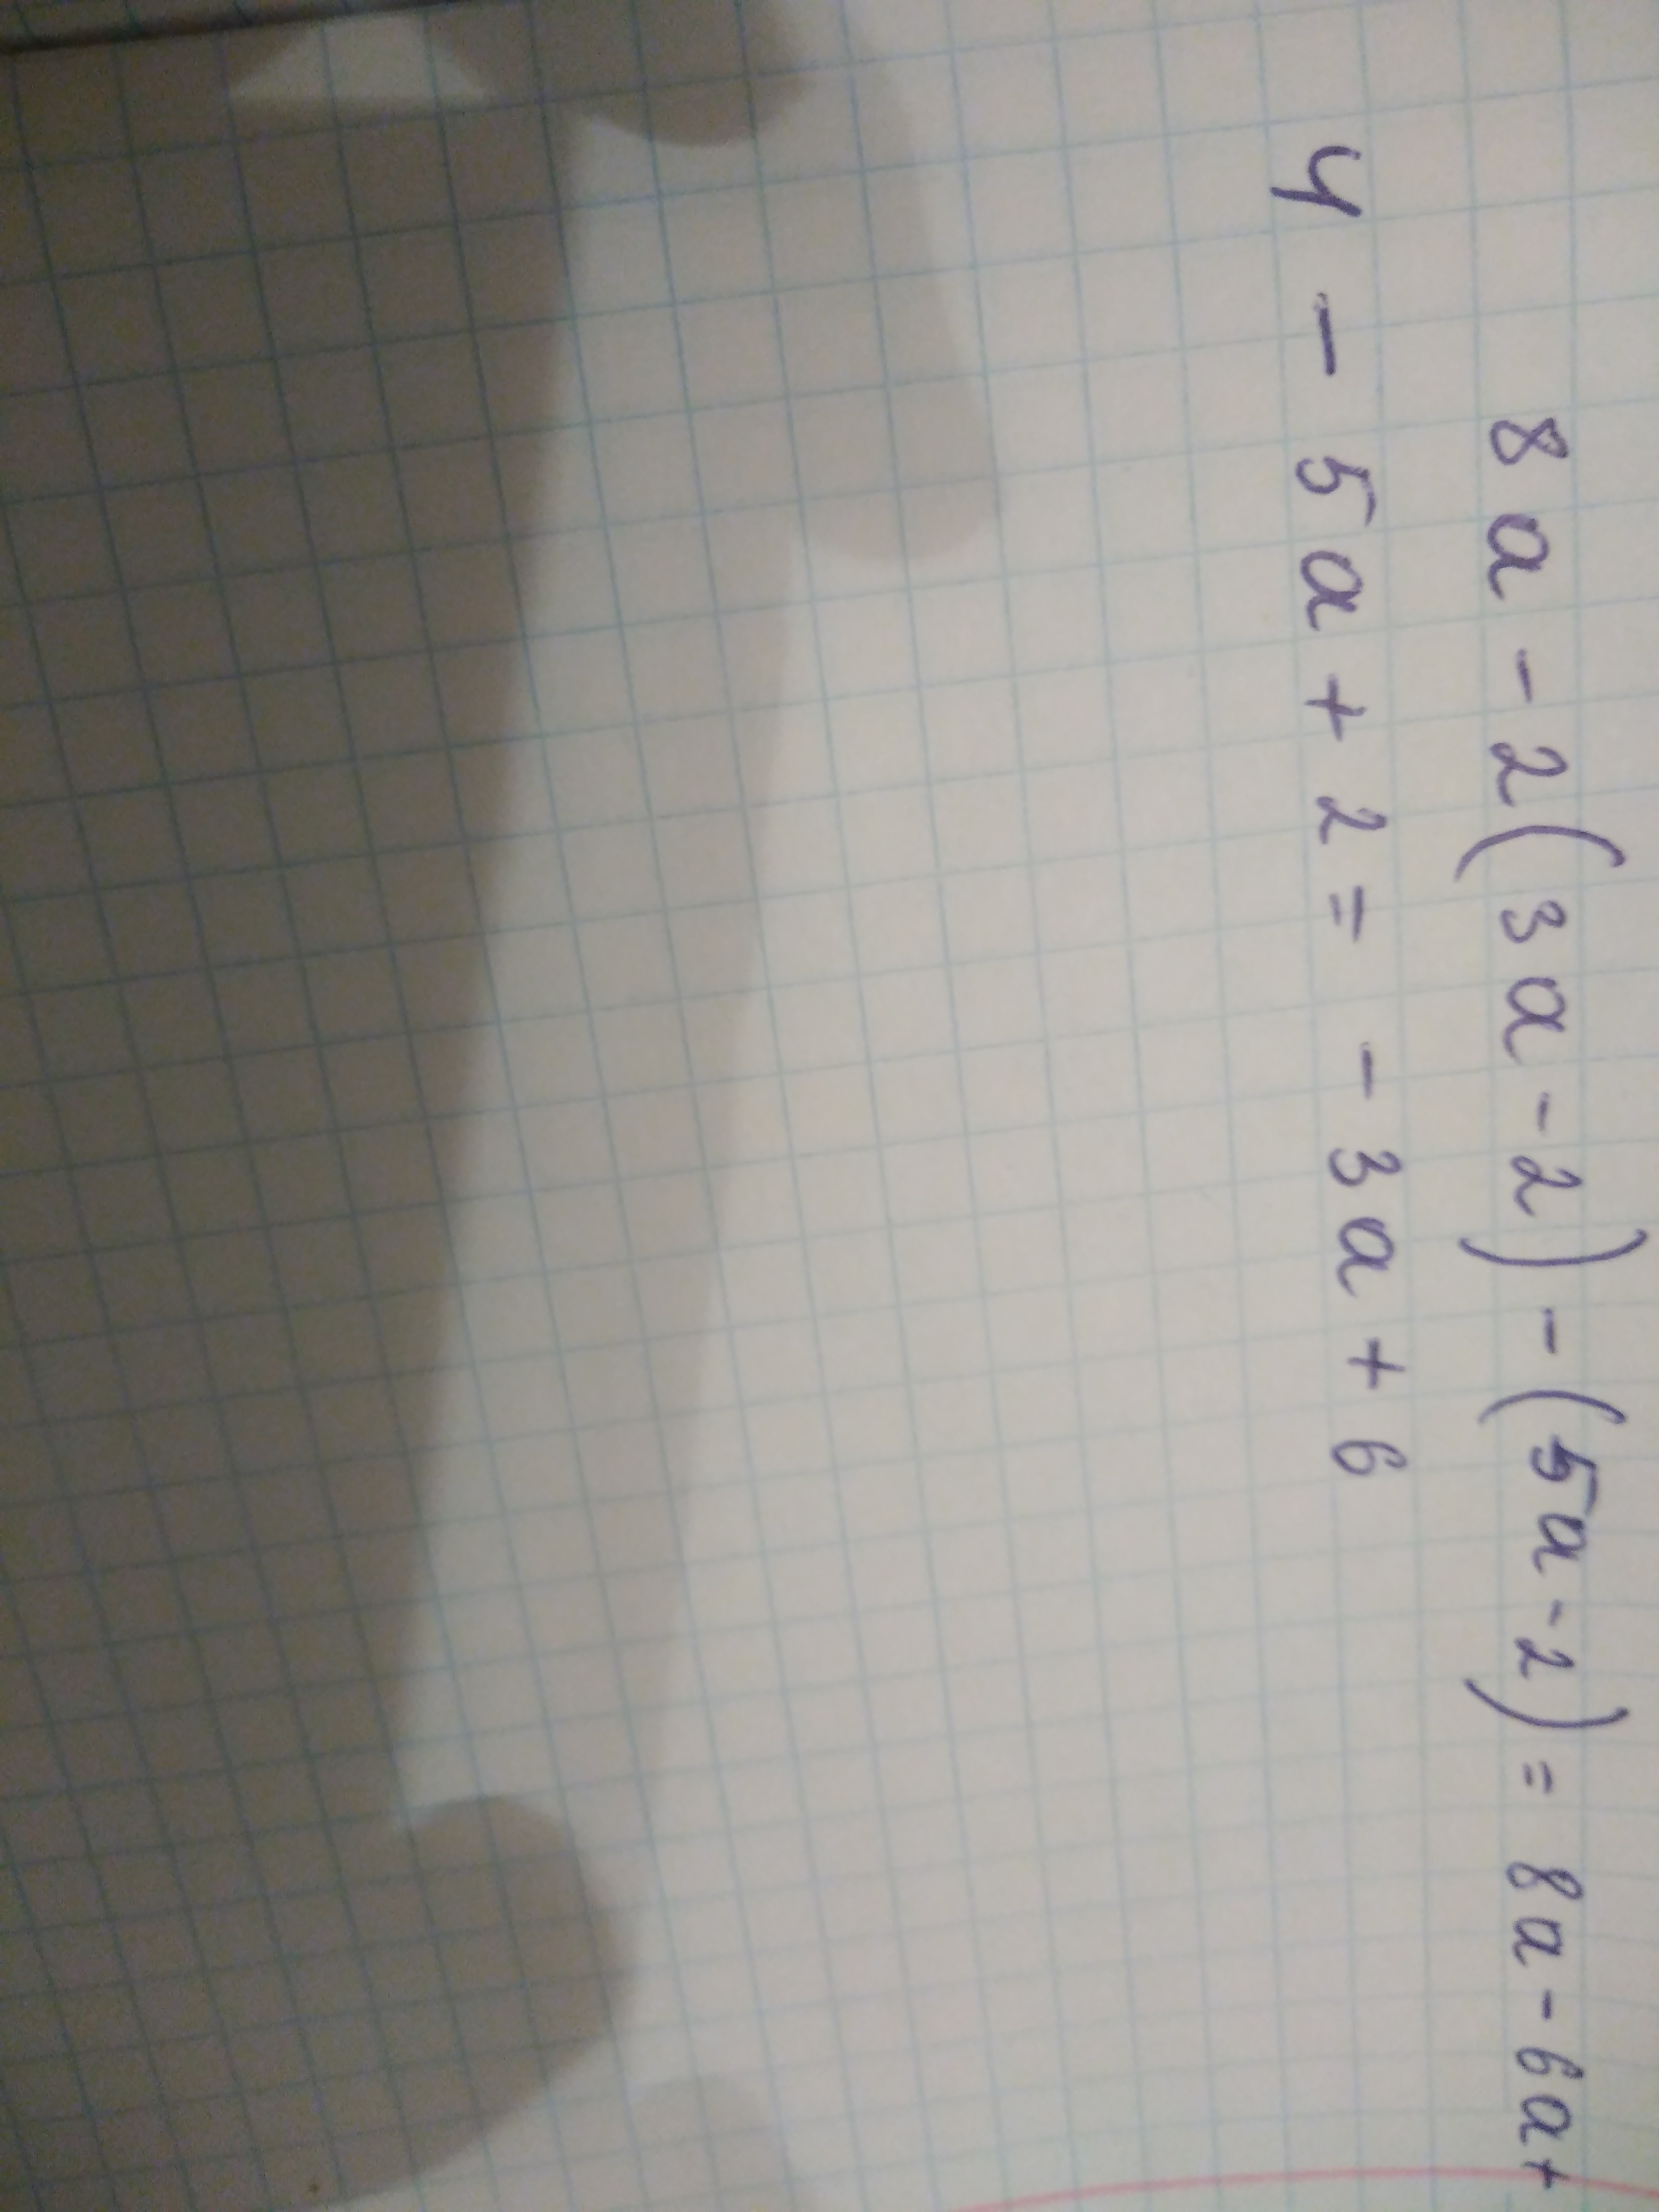 8a - 2(3a - 2) - (5a - 2) = 8a - 6a +
4 - 5a + 2 = - 3a + 6